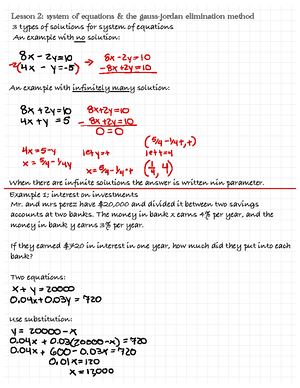 Lesson 2: system of equations & the gauss-jordan elimination method
3 types of solutions for system of equations
An example with no solution:
8x - 2y = 10 → 8x - 2y = 10
-2(4x - y = -5) -8x + 2y = 10
An example with infinitely many solution:
8x + 2y = 10 8x + 2y = 10
4x + y = 5 - 8x + 2y = 10
0 = 0
(5/4 - 1/4t, t)
4x = 5 - y let y = t let t = 4
x = 5/4 - 1/4y x = 5/4 - 1/4t (1/4, 4)
When there are infinite solutions the answer is written nin parameter.
Example 1: interest on investments
Mr. and mrs perez have $20,000 and divided it between two savings
accounts at two banks. The money in bank x earns 4% per year, and the
money in bank y earns 3% per year.
If they earned $720 in interest in one year, how much did they put into each
bank?
Two equations:
x + y = 20000
0.04x + 0.03y = 720
Use substitution:
y = 20000 - x
0.04x + 0.03(20000 - x) = 720
0.04x + 600 - 0.03x = 720
0.01x = 120
x = 12,000